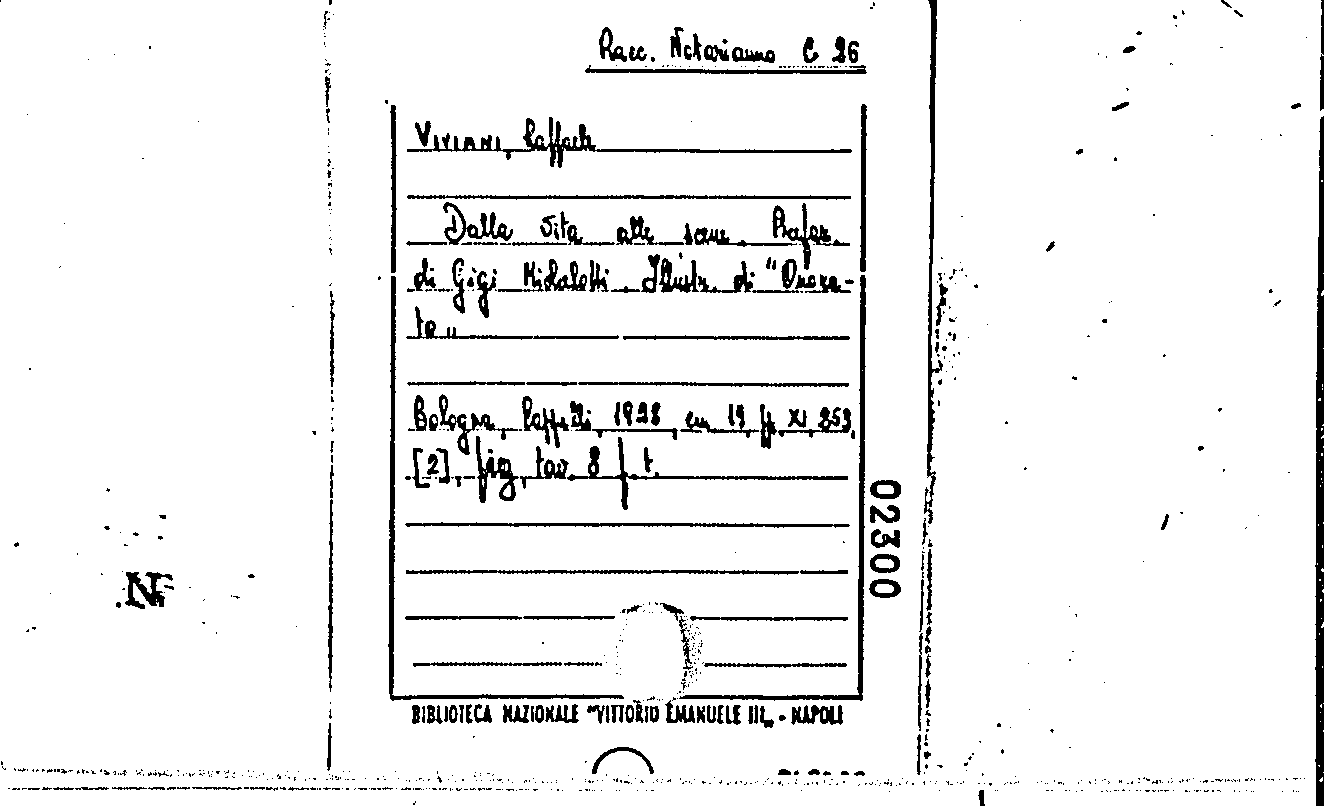 Racc. Notarianno C 26
VIVIANI, Raffaele
Dalla vita alle scene. Prefaz.
di Gigi Michelotti. Illustr. di "Onora-
to"
Bologna, Cappelli, 1928, cm. 19, pp. XI, 253,
[2], fig, tav. 8 f.t.
02300
BIBLIOTECA NAZIONALE "VITTORIO EMANUELE III„ - NAPOLI